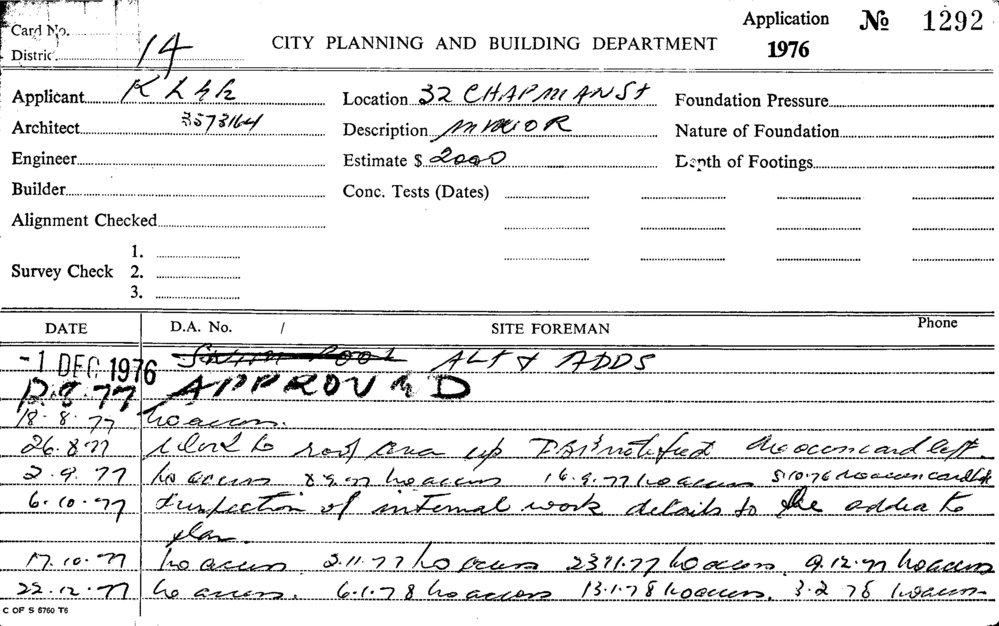 Card No.
Application No 1292
District 14
CITY PLANNING AND BUILDING DEPARTMENT
1976
Applicant
Location 32 CHAPMAN St
Foundation Pressure
Architect 3573164
Description MINOR
Nature of Foundation
Engineer
Estimate $ 2000
Depth of Footings
Builder
Conc. Tests (Dates)
Alignment Checked
1.
Survey Check 2.
3.
DATE D.A. No. / SITE FOREMAN Phone
-1 DEC 1976 SWIM POOL ALT & ADDS
12.8.77 APPROVED
18.8.77 no access.
26.8.77 work to roof area up notified no access card left.
2.9.77 no access 8.9.77 no access 16.9.77 no access 5.10.76 no access card left
6.10.77 Inspection of internal work details to be added to
plan.
17.10.77 no access 2.11.77 no access 23.11.77 no access. 9.12.77 no access
22.12.77 no access. 6.1.78 no access 13.1.78 no access. 3.2.78 no access.
C OF S 6760 T6